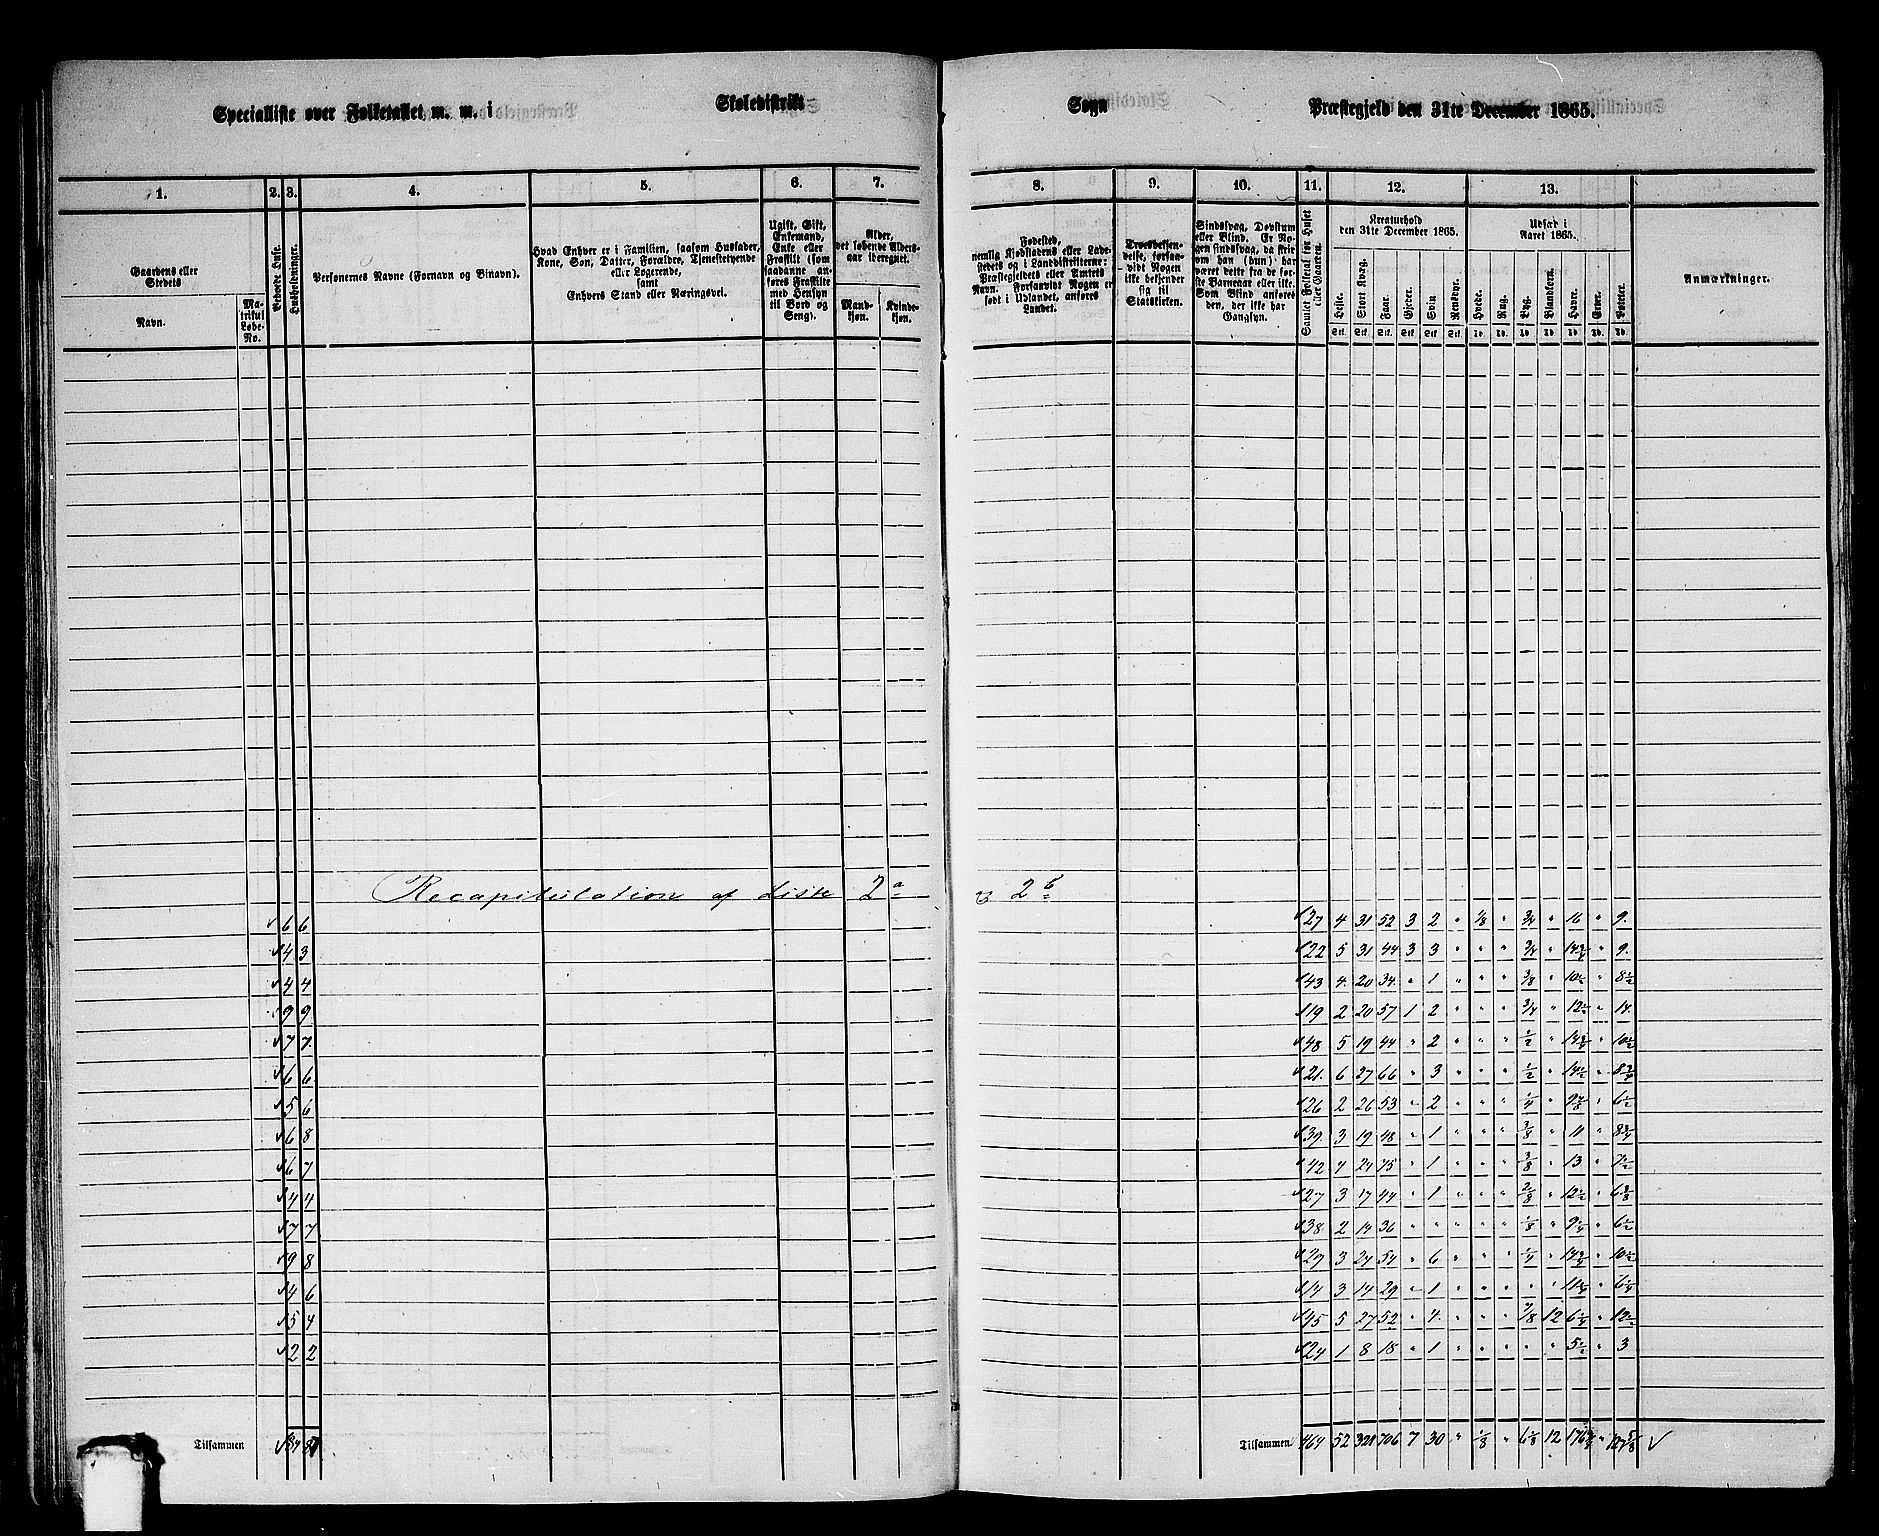 Specialliste over Folketallet m. m. i Skoledistrikt Sogn Præstegjeld den 31te December 1865.
1. 2. 3. 4. 5. 6. 7. 8. 9. 10. 11. 12. 13.
Gaardens eller Stedets
Navn.
Matrikul Løbe-No.
Beboede Huse.
Husholdninger.
Personernes Navne (Fornavn og Binavn).
Hvad Enhver er i Familien, saasom Husfader, Kone, Søn, Datter, Forældre, Tjenestetyende eller Logerende,
samt
Enhvers Stand eller Næringsvei.
Ugift, Gift, Enkemand, Enke eller Fraskilt (som saadanne anføres Fraskilte med Hensyn til Bord og Seng).
Alder, det løbende Aldersaar iberegnet.
Mandkjøn.
Kvindekjøn.
Fødested,
nemlig Kjøbstadens eller Ladestedets og i Landdistrikterne: Præstegjeldets eller Amtets Navn. Forsaavidt Nogen er født i Udlandet, anføres Landet.
Troesbekjendelse, forsaavidt Nogen ikke bekjender sig til Statskirken.
Sindssvag, Døvstum eller Blind. Er Nogen sindssvag, da skrives om han (hun) har været dette fra de første Barneaar eller ikke. Som Blind anføres den, der ikke har Gangsyn.
Samlet Folketal for Huset eller Gaarden.
Kreaturhold
den 31te December 1865.
Heste. Stort Kvæg. Faar. Gjeder. Svin Rensdyr.
Stk. Stk. Stk. Stk. Stk. Stk.
Udsæd i
Aaret 1865.
Hvede. Rug. Byg. Blandkorn. Havre. Erter. Poteter.
Td. Td. Td. Td. Td. Td. Td.
Anmærkninger.
Recapitulation af Liste 2 a & 2 b
6 6 27 4 31 52 3 2 " 1/8 " 3/4 " 16 " 9.
4 3 22 5 31 44 3 3 " " " 3/4 " 14 3/4 " 9.
4 4 43 4 20 34 " 1 " " " 3/8 " 10 1/2 " 8 1/2
9 9 19 2 20 57 1 2 " " " 3/4 " 12 1/2 " 14.
7 7. 48 5 19 44 " 2 " " " 1/2 " 14 3/4 " 10 1/2
6 6 21. 6 27 66 " 3 " " " 1/2 " 14 1/2 " 8 3/4
5 6 26 2 26 53 " 2 " " " 1/4 " " 6 1/2
6 8 39 3 19 48 " 1 " " " 3/8 " 11 " 8 3/4
6 7 42 4 24 75 " 1 " " " 3/8 " 13 " 7 1/2
4 4 27 3 17 44 " 1 " " " 2/8 " 12 1/2 " 6 3/8
7 7 38 2 14 36 " " " " " 1/8 " 9 1/4 " 6 1/2
9 8 29 3 24 54 " 6 " " " 1/4 " 14 3/4 " 10 1/2
4 6 14 3 14 29 " 1 " " " " " 11 3/4 " 6 1/4
5 4 45 5 27 52 " 4. " " " 7/8 12 6 1/4 " 12 1/2
2 2 24 1 8 18 " 1 " " " " " 5 1/2 " 3
Tilsammen 84 87 Tilsammen 464 52 321 706 7 30 " 1/8 " 6 1/8 12 "